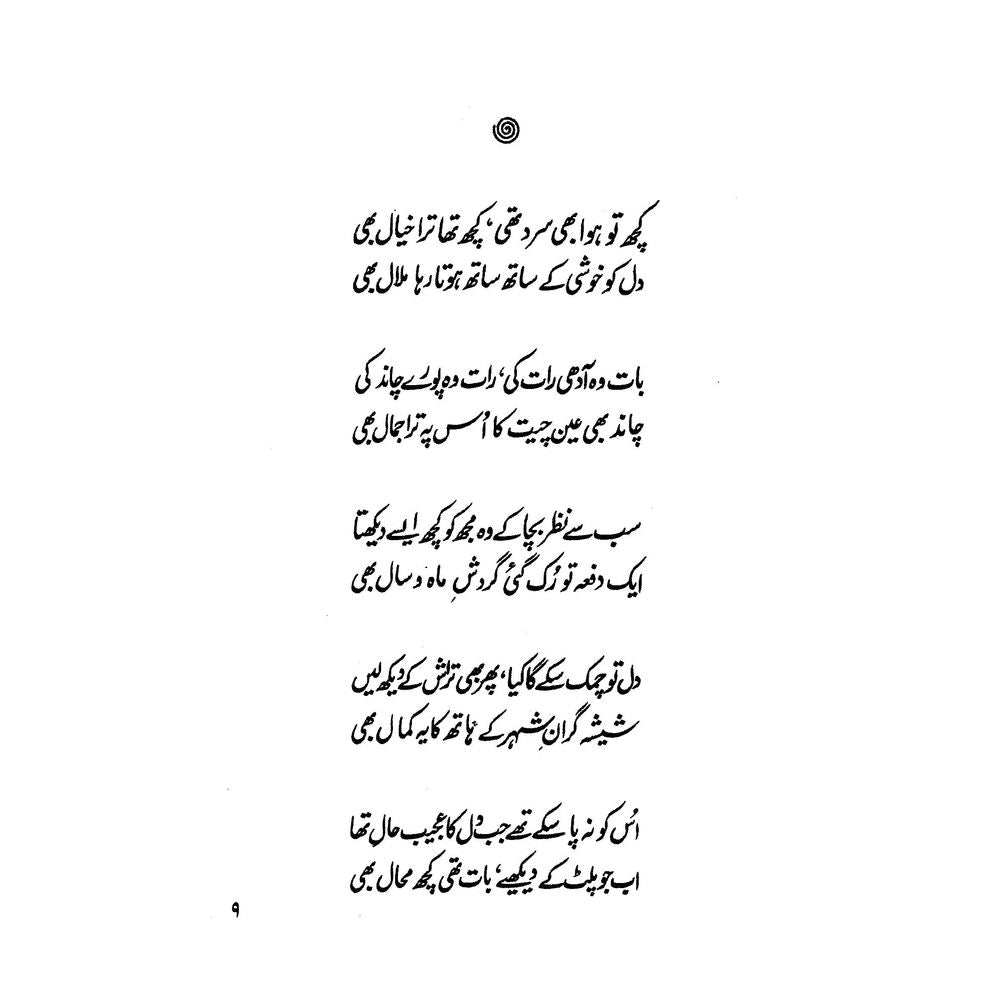 کچھ تو ہوا بھی سرد تھی، کچھ تھا ترا خیال بھی
دل کو خوشی کے ساتھ ساتھ ہوتا رہا ملال بھی
بات وہ آدھی رات کی، رات وہ پورے چاند کی
چاند بھی عین چیت کا اُس پہ ترا جمال بھی
سب سے نظر بچا کے وہ مجھ کو کچھ ایسے دیکھتا
ایک دفعہ تو رُک گئی گردشِ ماہ و سال بھی
دل تو چمک سکے گا کیا، پھر بھی تراش کے دیکھ لیں
شیشہ گرانِ شہر کے ہاتھ کا یہ کمال بھی
اُس کو نہ پا سکے تھے جب دل کا عجیب حال تھا
اب جو پلٹ کے دیکھیے، بات تھی کچھ محال بھی
۹